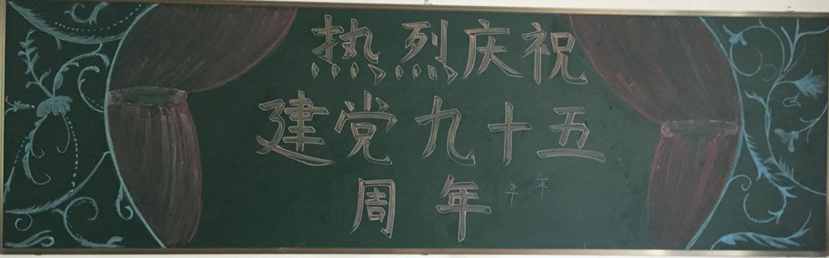 热烈庆祝
建党九十五
周年